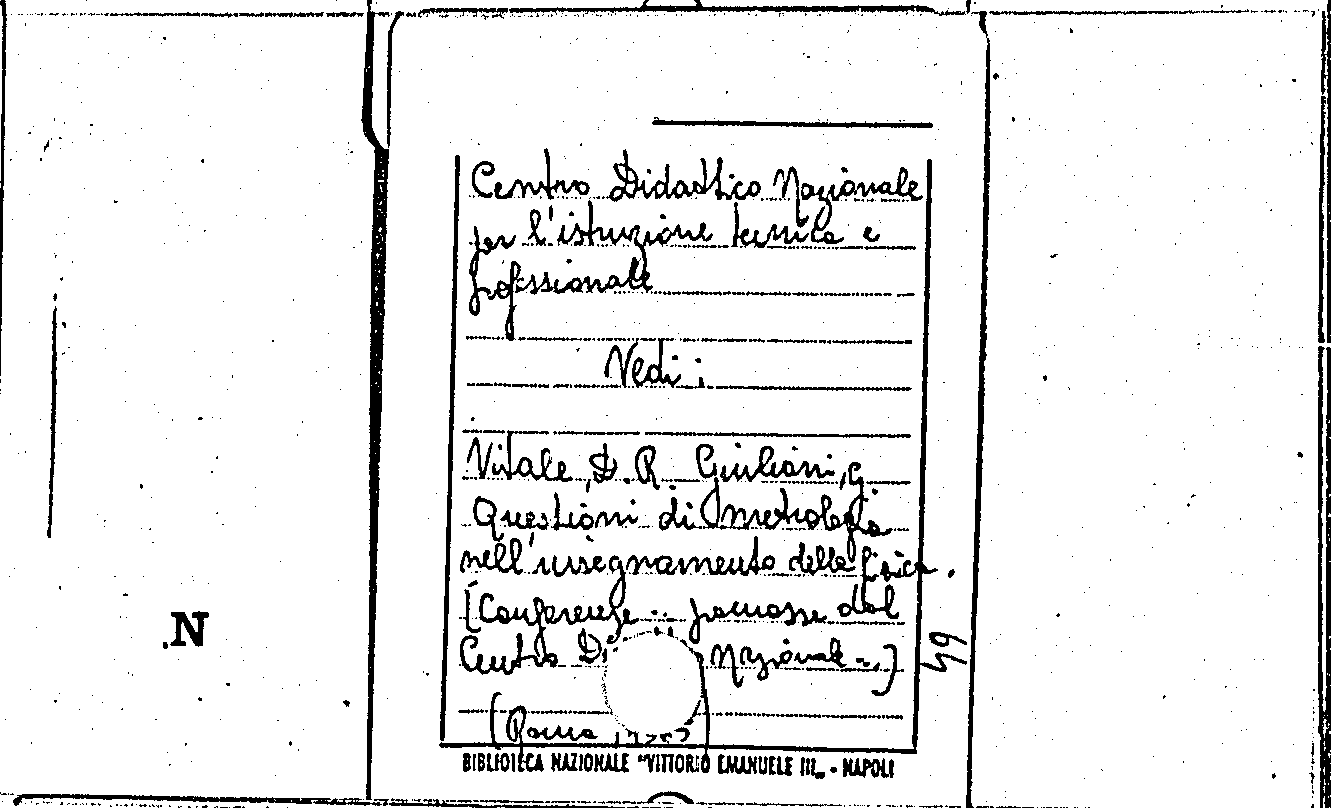 Centro Didattico Nazionale
per l'istruzione tecnica e
professionale
Vedi:
Vitale, D. R. Giuliani, G.
Questioni di metrologia
nell'insegnamento della fisica.
[Conferenze .. promosse dal
Centro Di Nazionale ..]
(Roma
49
N
BIBLIOTECA NAZIONALE "VITTORIO EMANUELE III„ - NAPOLI